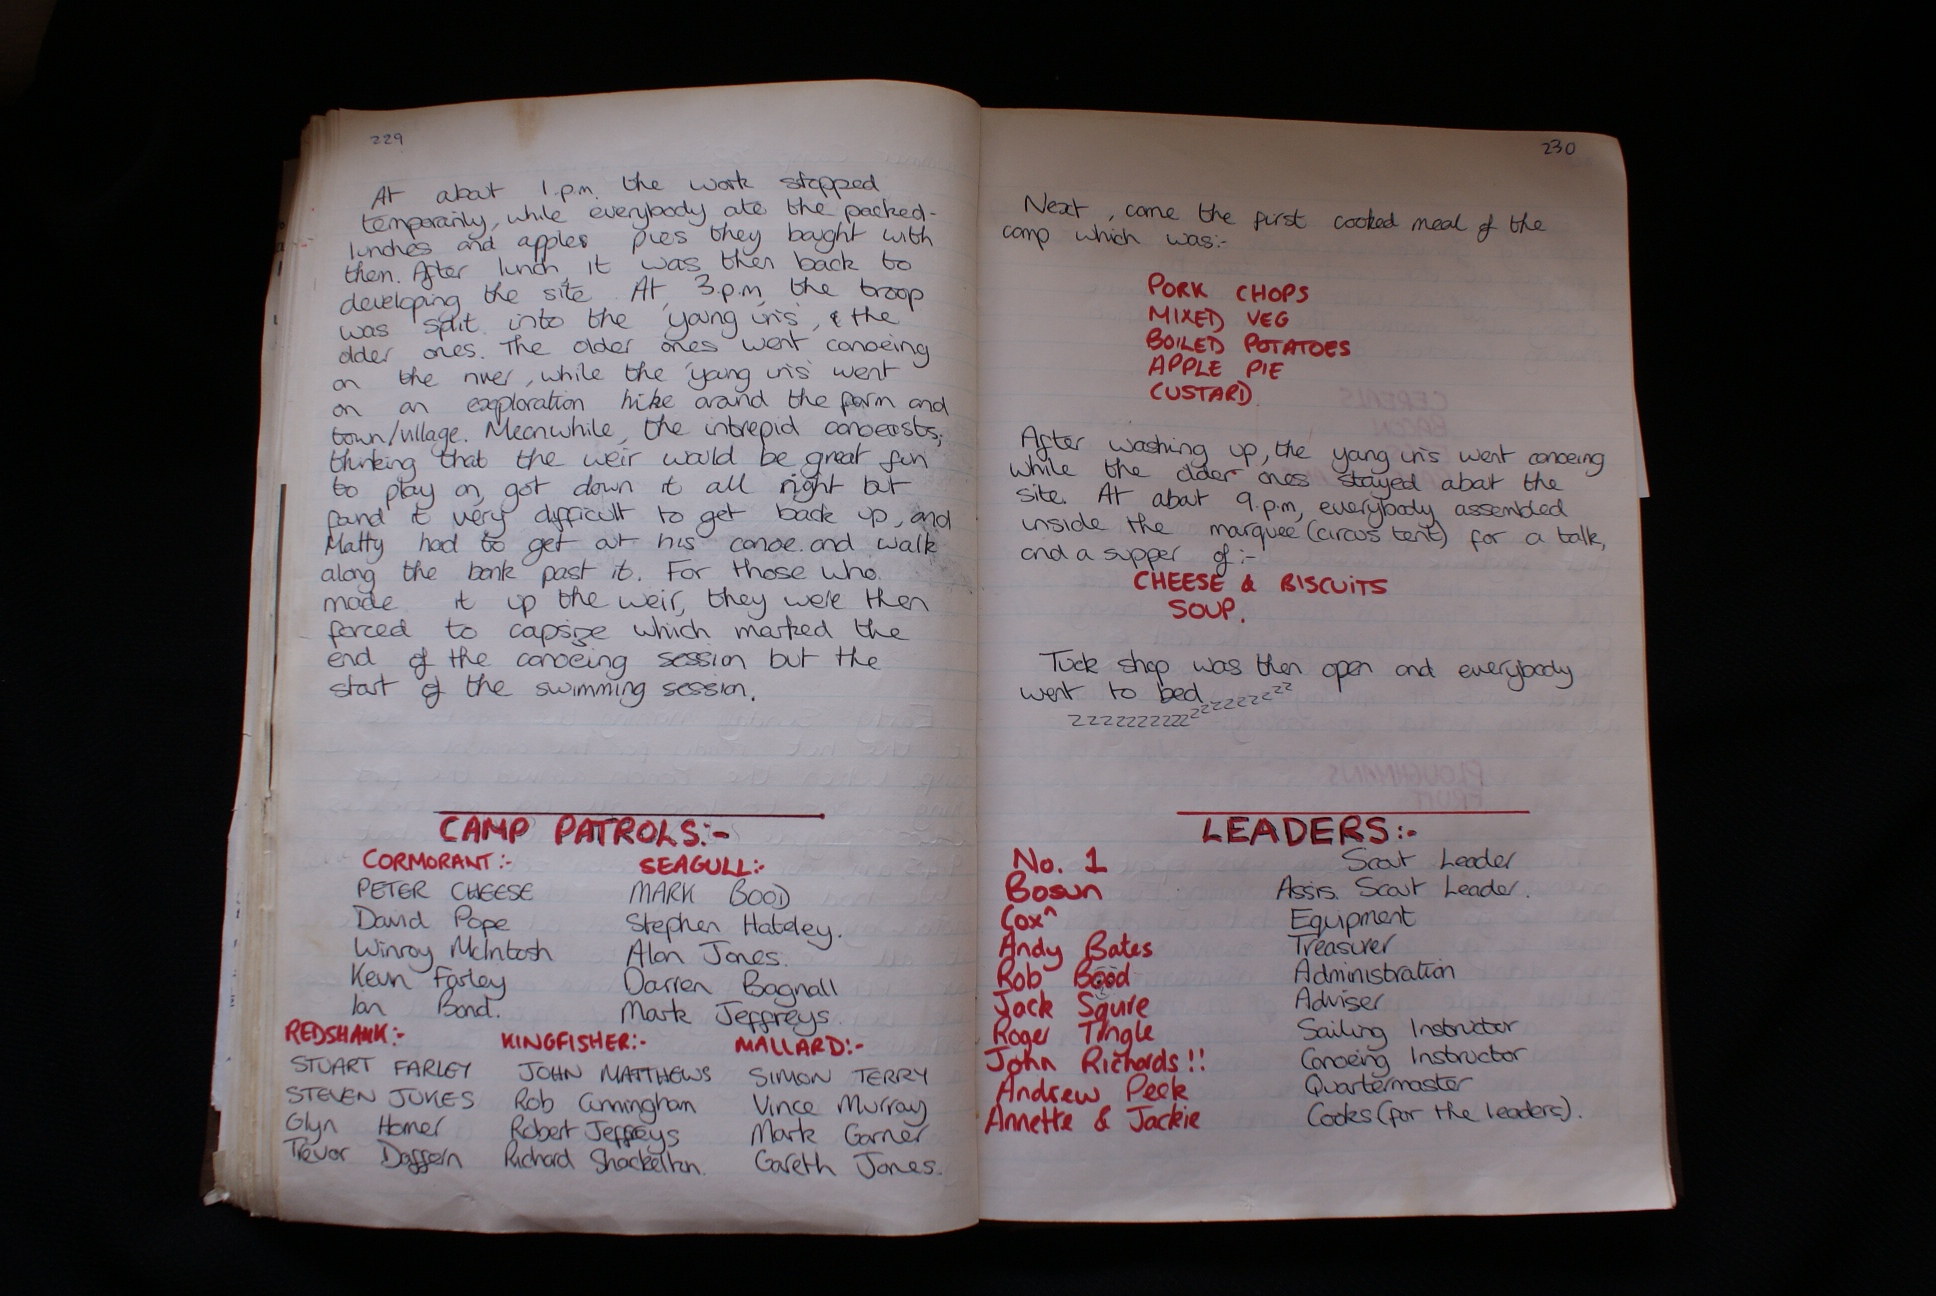 229
At about 1.p.m. the work stopped
temporarily, while everybody ate the packed-
lunches and apples pies they bought with
them. After lunch it was then back to
developing the site. At 3.p.m, the troop
was split into the 'young un's', & the
older ones. The older ones went canoeing
on the river, while the 'young un's' went
on an exploration hike around the farm and
town/village. Meanwhile, the intrepid canoeists,
thinking that the weir would be great fun
to play on, got down it all right but
found it very difficult to get back up, and
Matty had to get out his canoe and walk
along the bank past it. For those who
made it up the weir, they were then
forced to capsize which marked the
end of the canoeing session but the
start of the swimming session.
CAMP PATROLS:-
CORMORANT:- SEAGULL:-
PETER CHEESE MARK BOOD
David Pope Stephen Hateley.
Winroy McIntosh Alan Jones.
Kevin Farley Darren Bagnall
Ian Bond. Mark Jeffreys.
REDSHANK:- KINGFISHER:- MALLARD:-
STUART FARLEY JOHN MATTHEWS SIMON TERRY
STEVEN JUKES Rob Cunningham Vince Murray
Glyn Homer Robert Jeffreys Mark Garner
Trevor Daffern Richard Shackelton. Gareth Jones.
230
Next, came the first cooked meal of the
camp which was:-
PORK CHOPS
MIXED VEG
BOILED POTATOES
APPLE PIE
CUSTARD
After washing up, the young un's went canoeing
while the older ones stayed about the
site. At about 9.p.m, everybody assembled
inside the marquee (circus tent) for a talk,
and a supper of:-
CHEESE & BISCUITS
SOUP.
Tuck shop was then open and everybody
went to bed zzzzzzzz
zzzzzzzzzzzz
LEADERS:-
No. 1 Scout Leader
Bosun Assis. Scout Leader.
Cox^n Equipment
Andy Bates Treasurer
Rob Bood Administration
Jack Squire Adviser
Roger Tingle Sailing Instructor
John Richards!! Canoeing Instructor
Andrew Peck Quartermaster
Annette & Jackie Cooks (for the leaders).